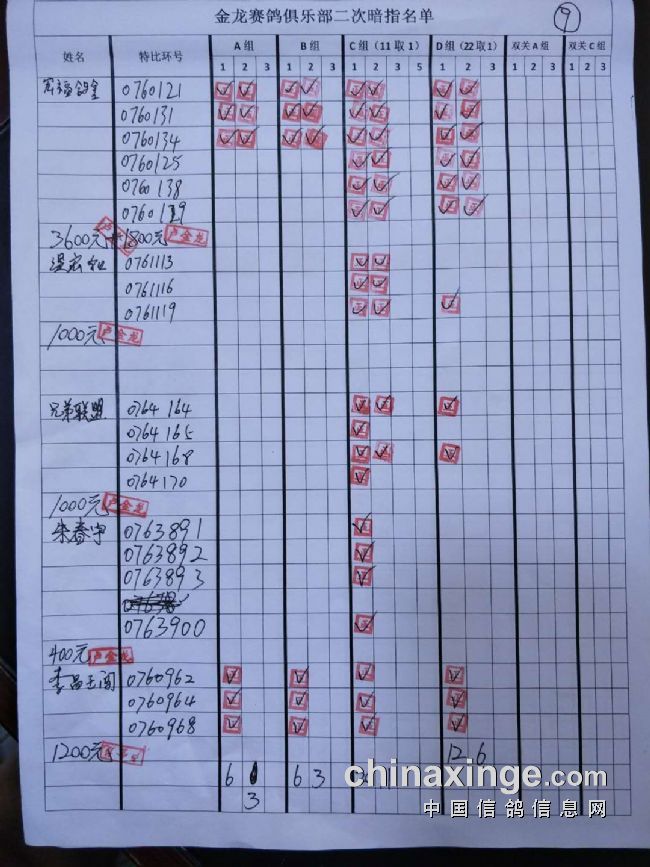 金龙赛鸽俱乐部二次暗指名单 9
姓名 特比环号 A 组 B 组 C 组（11 取 1） D 组（22 取 1） 双关 A 组 双关 C 组
1 2 3 1 2 3 1 2 3 4 5 1 2 3 1 2 3 1 2 3
0760121 ✓ ✓ ✓ ✓ ✓ ✓ ✓ ✓
0760131 ✓ ✓ ✓ ✓ ✓ ✓ ✓ ✓
0760134 ✓ ✓ ✓ ✓ ✓ ✓ ✓ ✓
0760125 ✓ ✓ ✓ ✓
0760138 ✓ ✓ ✓ ✓
0760119 ✓ ✓ ✓ ✓
3600元 1800元 卢金龙
0761113 ✓ ✓
0761116 ✓ ✓
0761119 ✓ ✓ ✓
1000元 卢金龙
兄弟联盟 0764164 ✓ ✓ ✓
0764165 ✓
0764168 ✓ ✓ ✓
0764170 ✓
1000元 卢金龙
朱春宇 0763891 ✓
0763892 ✓
0763893 ✓
0763900 ✓
400元 卢金龙
0760962 ✓ ✓ ✓ ✓
0760964 ✓ ✓ ✓ ✓
0760968 ✓ ✓ ✓ ✓
1200元 12 6
6 6 3
3
chinaxinge.com
中国信鸽信息网